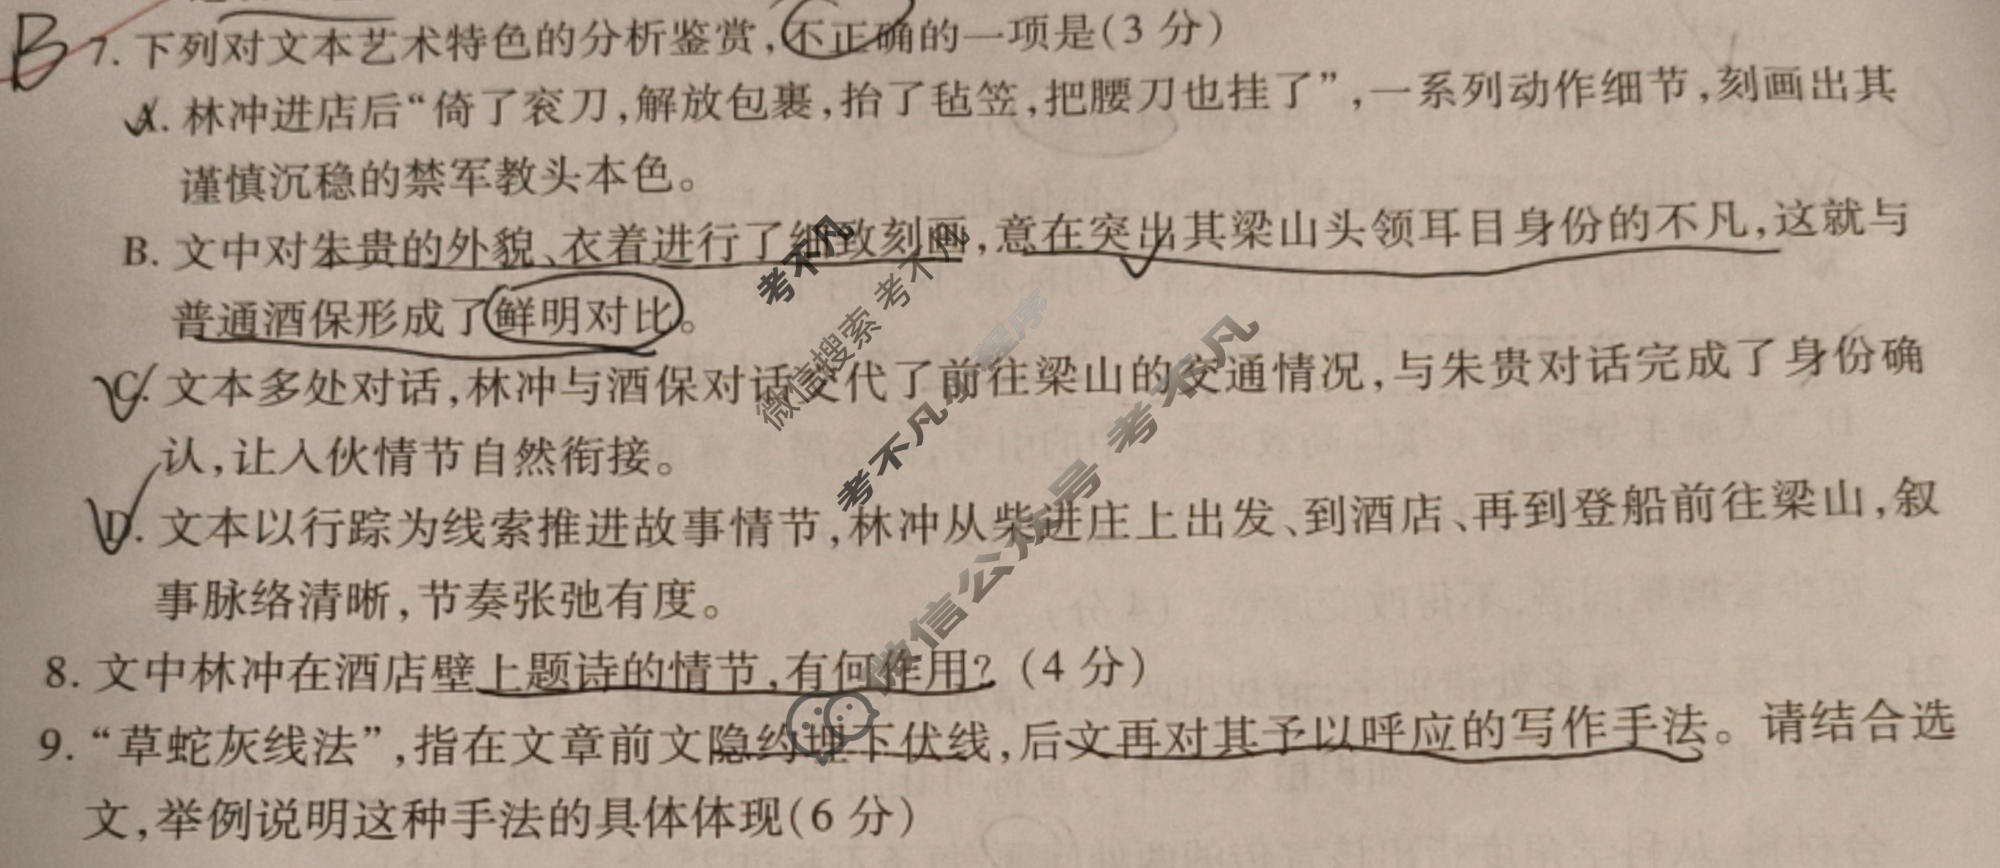 B 7. 下列对文本艺术特色的分析鉴赏,不正确的一项是(3 分)
A. 林冲进店后“倚了衮刀,解放包裹,抬了毡笠,把腰刀也挂了”,一系列动作细节,刻画出其
谨慎沉稳的禁军教头本色。
B. 文中对朱贵的外貌、衣着进行了细致刻画,意在突出其梁山头领耳目身份的不凡,这就与
普通酒保形成了鲜明对比。
C. 文本多处对话,林冲与酒保对话交代了前往梁山的交通情况,与朱贵对话完成了身份确
认,让入伙情节自然衔接。
D. 文本以行踪为线索推进故事情节,林冲从柴进庄上出发、到酒店、再到登船前往梁山,叙
事脉络清晰,节奏张弛有度。
8. 文中林冲在酒店壁上题诗的情节,有何作用? (4 分)
9. “草蛇灰线法”,指在文章前文隐约埋下伏线,后文再对其予以呼应的写作手法。请结合选
文,举例说明这种手法的具体体现(6 分)
考不凡
微信搜索 考不凡
考不凡小程序
微信公众号 考不凡